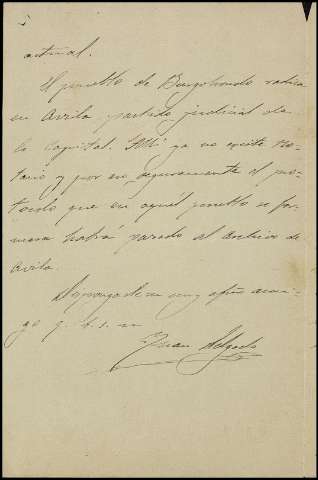 actual.
El pueblo de Burgohondo radica
en Avila, partido judicial de
la Capital. Allí ya no existe No-
tario y por eso seguramente el pro-
tocolo que en aquel pueblo se for-
mara habrá pasado al archivo de
Avila.
Disponga de su muy afmo ami-
go q. b. s. m
Juan Delgado